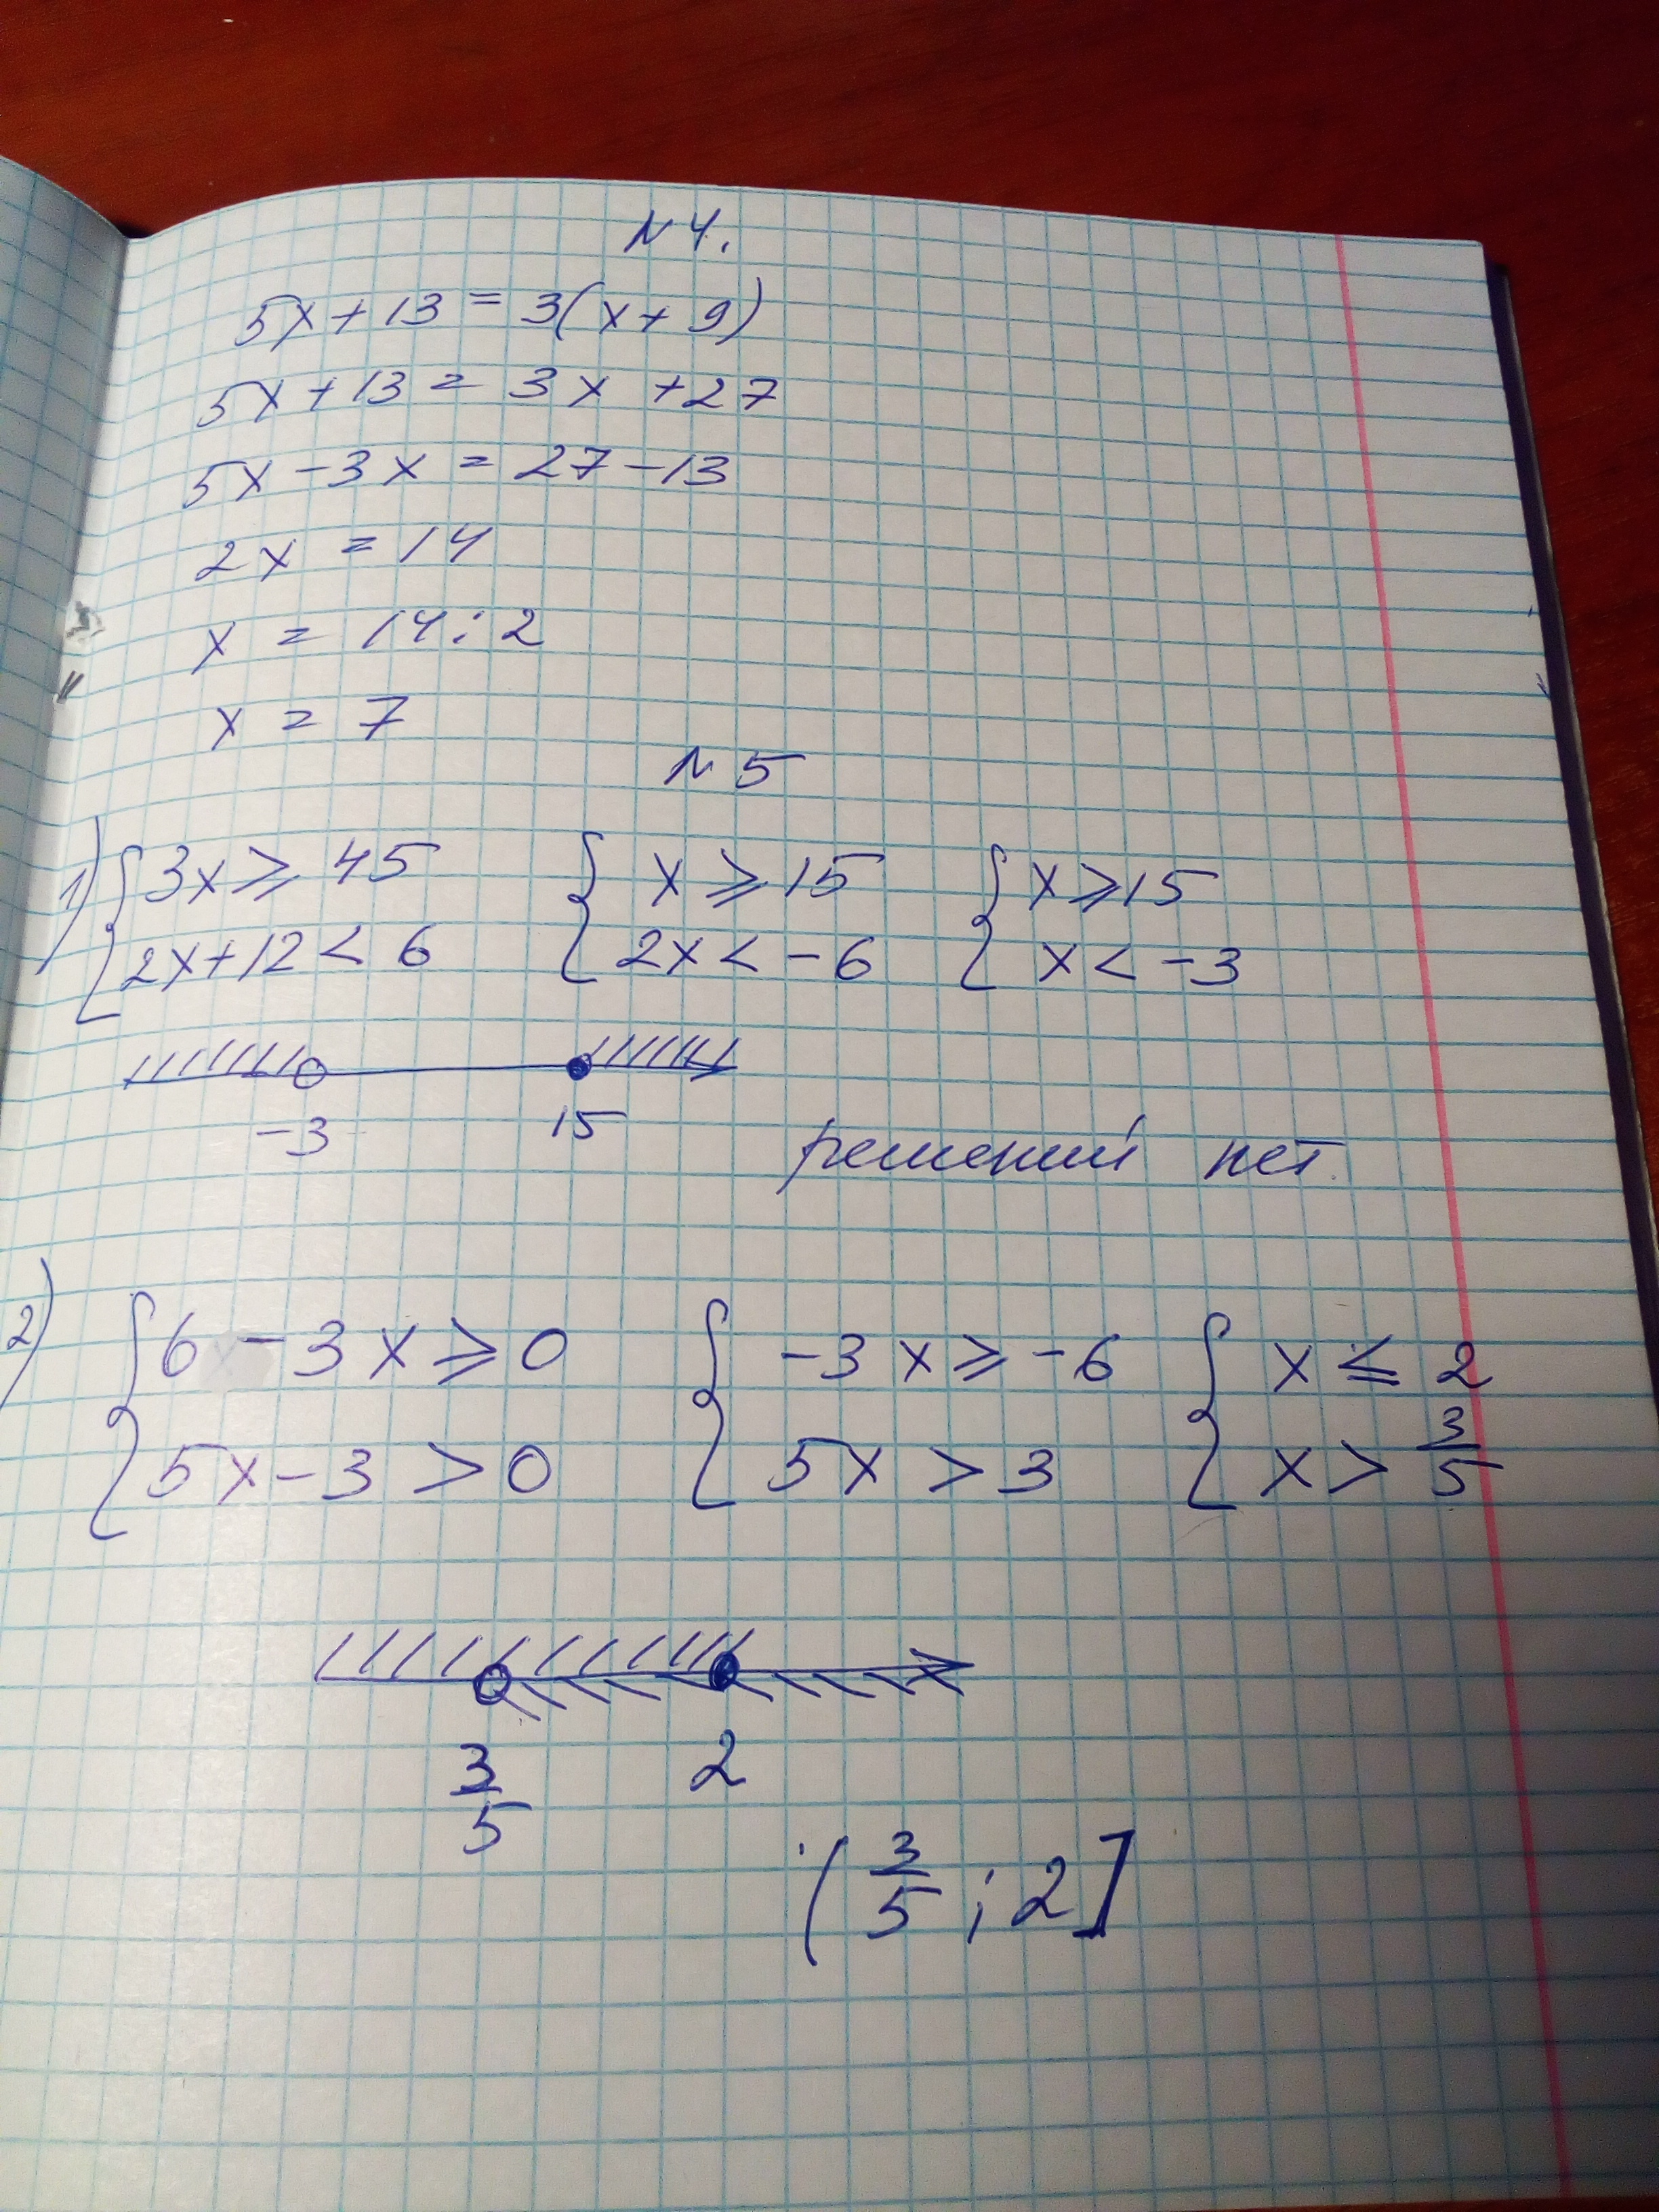 N 4.
5x + 13 = 3(x + 9)
5x + 13 = 3x + 27
5x - 3x = 27 - 13
2x = 14
x = 14 : 2
x = 7
N 5
1) { 3x ⩾ 45 { x ⩾ 15 { x ⩾ 15
2x + 12 < 6 2x < -6 x < -3
-3 15
решений нет.
2) { 6 - 3x ⩾ 0 { -3x ⩾ -6 { x ⩽ 2
5x - 3 > 0 5x > 3 x > 3/5
3/5 2
(3/5 ; 2]